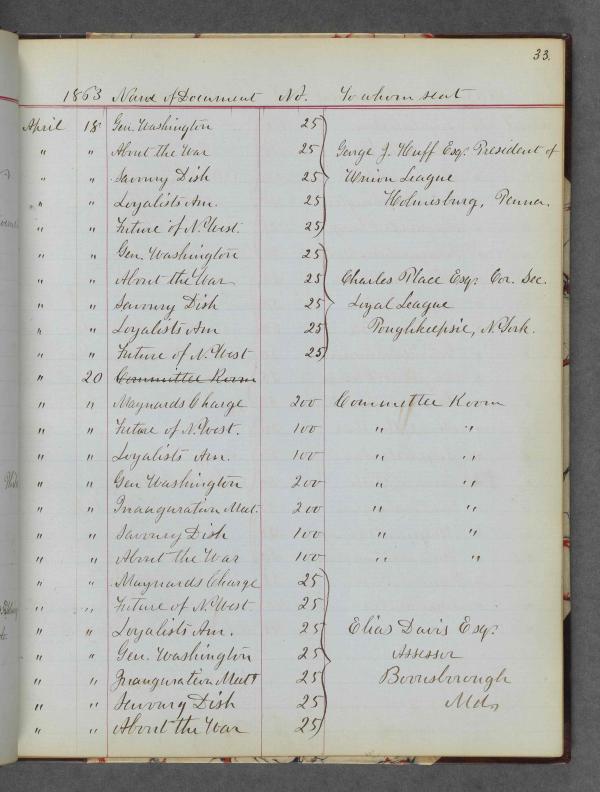 33.
1863 Name of Document No. To whom sent
April 18 Gen. Washington 25
" " About the War 25 George J. Huff Esq. President of
" " Savoury Dish 25 Union League
" " Loyalists Am. 25 Holmesburg, Penna.
" " Future of N. West. 25
" " Gen. Washington 25
" " About the War 25 Charles Place Esq. Cor. Sec.
" " Savoury Dish 25 Loyal League
" " Loyalists Am 25 Poughkeepsie, N. York.
" " Future of N. West 25
" 20 Committee Room
" " Maynards Charge 200 Committee Room
" " Future of N. West. 100 " "
" " Loyalists Am. 100 " "
" " Gen Washington 200 " "
" " Inauguration Meet. 200 " "
" " Savoury Dish 100 " "
" " About the War 100 " "
" " Maynards Charge 25
" " Future of N. West 25
" " Loyalists Am. 25 Elias Davis Esq.
" " Gen. Washington 25 Assessor
" " Inauguration Meet 25 Boonsborough
" " Savoury Dish 25 Md.
" " About the War 25